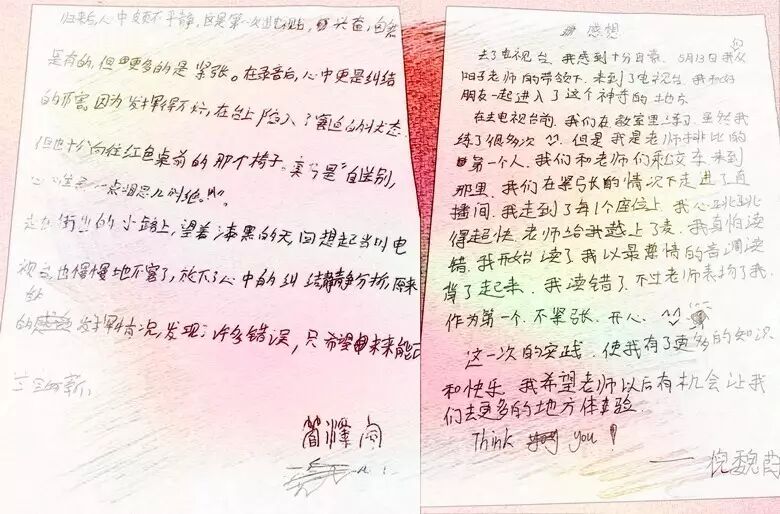 归来后心中颇不平静，这是第一次进电视台，兴奋，自然
是有的，但更多的是紧张。在录音后，心中更是纠结
的厉害，因为发挥得不好，在台上陷入了窘迫的状态
但也十分向往红色桌前的那个椅子。
走在街边的小路上，望着漆黑的天，回想起当时电
视台也慢慢地不害了，放下了心中的纠结静静分析，原来
的发挥情况，发现许多错误，只希望未来能
感想
去了电视台，我感到十分自豪，5月13日我众
阳子老师的带领下，来到了电视台，我和好
朋友一起进入了这个神奇的地方
在去电视台前，我们在教室里练习，虽然我
练了很多次，但是我是老师排比的
第一个人，我们和老师们乘公交车来到
那里，我们在紧张的情况下走进了直
播间，我走到了每1个座位上，我心跳跳
得超快，老师给我递上了麦，我真怕读
错，我开始读了，我以最感情的音调读
背了起来，我读错了，不过老师表扬了我，
作为第一个，不紧张，开心，^^
这一次的实践，使我有了更多的知识
和快乐，我希望老师以后有机会让我
们去更多的地方体验
Think you!
——倪魏